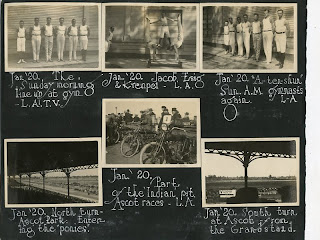 Jan '20. The
Sunday morning
line up at gym.
- L.A.T.V.
Jan '20. Jacob, Zeig
& Krenpel - L.A.
Jan '20.
Sun. A.M. gymnases
again. L-A
Jan. '20. North turn-
Ascot Park. Enter-
ing the 'ponies'.
Jan '20. Part
of the Indian pit,
Ascot races - L.A.
Jan '20. South turn
at Ascot from
the Grandstand.